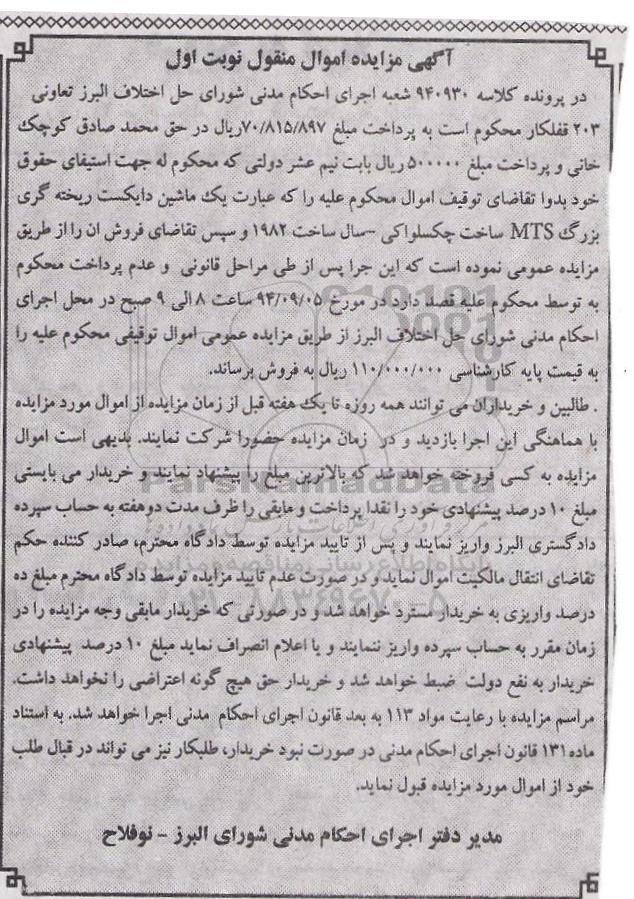 آگهی مزایده اموال منقول نوبت اول
در پرونده کلاسه ۹۴۰۹۳۰ شعبه اجرای احکام مدنی شورای حل اختلاف البرز تعاونی
۲۰۳ قفلکار محکوم است به پرداخت مبلغ ۷۰/۸۱۵/۸۹۷ریال در حق محمد صادق کوچک
خانی و پرداخت مبلغ ۵۰۰۰۰۰ ریال بابت نیم عشر دولتی که محکوم له جهت استیفای حقوق
خود بدوا تقاضای توقیف اموال محکوم علیه را که عبارت یک ماشین دایکست ریخته گری
بزرگ MTS ساخت چکسلواکی -سال ساخت ۱۹۸۲ و سپس تقاضای فروش ان را از طریق
مزایده عمومی نموده است که این جرا پس از طی مراحل قانونی و عدم پرداخت محکوم
به توسط محکوم علیه قصد دارد در مورخ ۹۴/۰۹/۰۵ ساعت ۸ الی ۹ صبح در محل اجرای
احکام مدنی شورای حل اختلاف البرز از طریق مزایده عمومی اموال توقیفی محکوم علیه را
به قیمت پایه کارشناسی ۱۱۰/۰۰۰/۰۰۰ ریال به فروش برساند.
. طالبین و خریداران می توانند همه روزه تا یک هفته قبل از زمان مزایده از اموال مورد مزایده
با هماهنگی این اجرا بازدید و در زمان مزایده حضورا شرکت نمایند. بدیهی است اموال
مزایده به کسی فروخته خواهد شد که بالاترین مبلغ را پیشنهاد نمایند و خریدار می بایستی
مبلغ ۱۰ درصد پیشنهادی خود را نقدا پرداخت و مابقی را ظرف مدت دوهفته به حساب سپرده
دادگستری البرز واریز نمایند و پس از تایید مزایده توسط دادگاه محترم، صادر کننده حکم
تقاضای انتقال مالکیت اموال نماید و در صورت عدم تایید مزایده توسط دادگاه محترم مبلغ ده
درصد واریزی به خریدار مسترد خواهد شد و در صورتی که خریدار مابقی وجه مزایده را در
زمان مقرر به حساب سپرده واریز ننمایند و یا اعلام انصراف نماید مبلغ ۱۰ درصد پیشنهادی
خریدار به نفع دولت ضبط خواهد شد و خریدار حق هیچ گونه اعتراضی را نخواهد داشت.
مراسم مزایده با رعایت مواد ۱۱۳ به بعد قانون اجرای احکام مدنی اجرا خواهد شد. به استناد
ماده۱۳۱ قانون اجرای احکام مدنی در صورت نبود خریدار، طلبکار نیز می تواند در قبال طلب
خود از اموال مورد مزایده قبول نماید.
مدیر دفتر اجرای احکام مدنی شورای البرز - نوفلاح
ParsNamadData